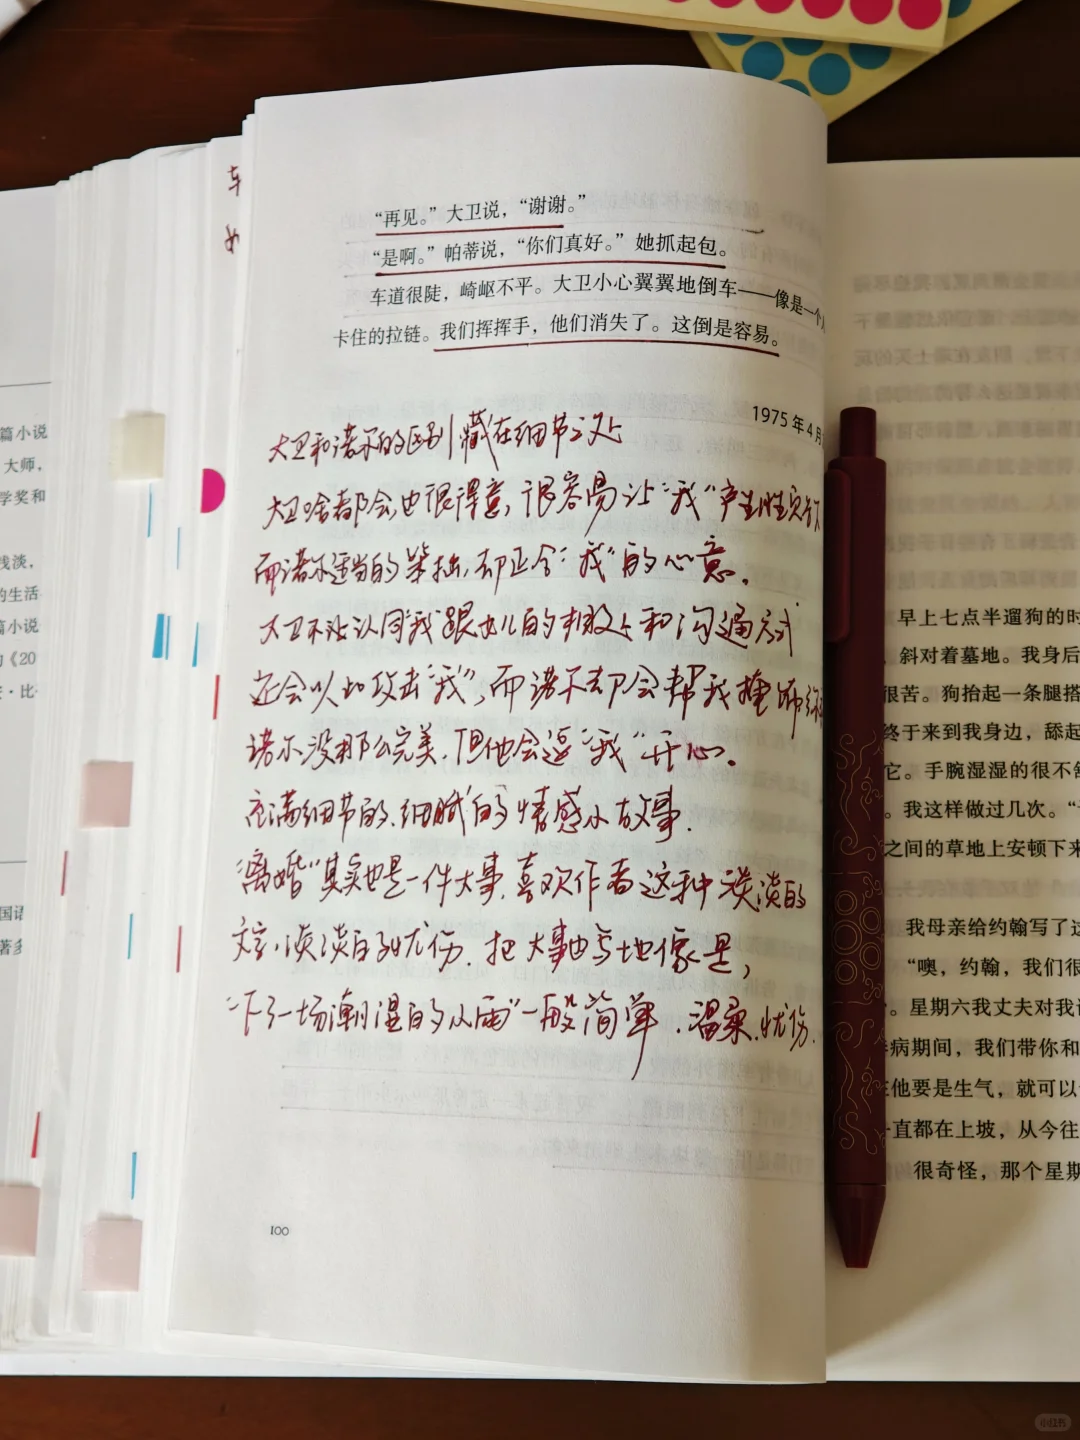 车
“再见。”大卫说，“谢谢。”
“是啊。”帕蒂说，“你们真好。”她抓起包。
车道很陡，崎岖不平。大卫小心翼翼地倒车——像是一个
卡住的拉链。我们挥挥手，他们消失了。这倒是容易。
1975年4月
大卫和诺尔的区别藏在细节之处
大卫啥都会，也很得意，很容易让“我”产生
而诺尔适当的笨拙，却正合“我”的心意。
大卫不认同“我”跟女儿的 和沟通方式
还会以此攻击“我”，而诺尔却会帮我掩饰
诺尔没那么完美，但他会逗“我”开心。
充满细节的、细腻的情感小故事。
离婚“其实也是一件大事，喜欢作者这种淡淡的
文字，淡淡的忧伤，把大事也写地像是，
“下了一场潮湿的 雨”一般简单、温柔、忧伤.
100
篇小说
大师，
学奖和
浅淡，
的生活
篇小说
《20
·比
国语
著多
早上七点半遛狗的时
斜对着墓地。我身后
很苦。狗抬起一条腿搭
终于来到我身边，舔起
它。手腕湿湿的很不舒
。我这样做过几次。“
之间的草地上安顿下来
我母亲给约翰写了这
“噢，约翰，我们很
。星期六我丈夫对我说
病期间，我们带你和
他要是生气，就可以
一直都在上坡，从今往
很奇怪，那个星期
小红书